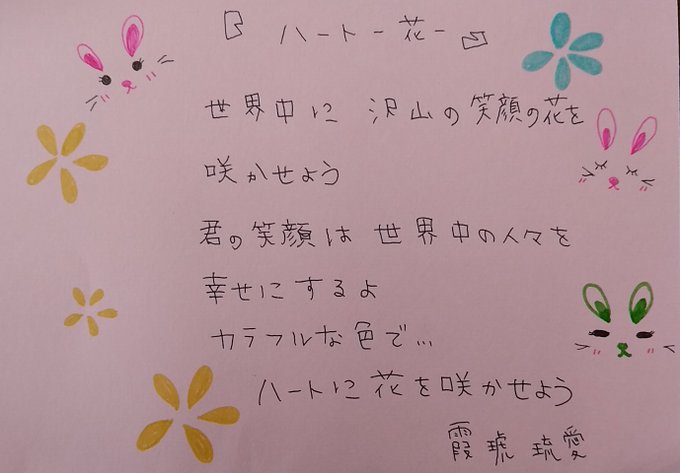 『ハートー花ー』
世界中に 沢山の笑顔の花を
咲かせよう
君の笑顔は 世界中の人々を
幸せにするよ
カラフルな色で...
ハートに花を咲かせよう
霞琥 琉愛